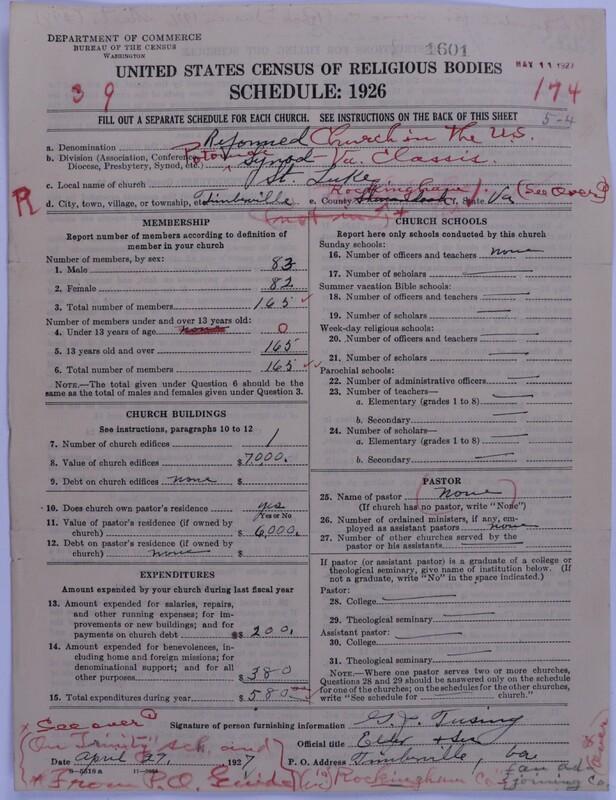 DEPARTMENT OF COMMERCE
BUREAU OF THE CENSUS
WASHINGTON
1601
MAY 11 1927
UNITED STATES CENSUS OF RELIGIOUS BODIES
SCHEDULE: 1926
39
174
5-4
FILL OUT A SEPARATE SCHEDULE FOR EACH CHURCH. SEE INSTRUCTIONS ON THE BACK OF THIS SHEET
a. Denomination Reformed Church in the U.S.
b. Division (Association, Conference, Diocese, Presbytery, Synod, etc.) Potomac Synod Va. Classis.
c. Local name of church St Luke
R
d. City, town, village, or township, etc. Timberville e. County Rockingham Shenandoah State Va (See Over)
MEMBERSHIP
Report number of members according to definition of member in your church
Number of members, by sex:
1. Male 83
2. Female 82
3. Total number of members 165
Number of members under and over 13 years old:
4. Under 13 years of age none 0
5. 13 years old and over 165
6. Total number of members 165
NOTE.—The total given under Question 6 should be the same as the total of males and females given under Question 3.
CHURCH BUILDINGS
See instructions, paragraphs 10 to 12
7. Number of church edifices 1
8. Value of church edifices $7000.
9. Debt on church edifices none $
10. Does church own pastor's residence yes
Yes or No
11. Value of pastor's residence (if owned by church) $6,000.
12. Debt on pastor's residence (if owned by church) none $
EXPENDITURES
Amount expended by your church during last fiscal year
13. Amount expended for salaries, repairs, and other running expenses; for improvements or new buildings; and for payments on church debt $200.
14. Amount expended for benevolences, including home and foreign missions; for denominational support; and for all other purposes $380
15. Total expenditures during year $580
CHURCH SCHOOLS
Report here only schools conducted by this church
Sunday schools:
16. Number of officers and teachers none
17. Number of scholars
Summer vacation Bible schools:
18. Number of officers and teachers
19. Number of scholars
Week-day religious schools:
20. Number of officers and teachers
21. Number of scholars
Parochial schools:
22. Number of administrative officers
23. Number of teachers—
a. Elementary (grades 1 to 8)
b. Secondary
24. Number of scholars—
a. Elementary (grades 1 to 8)
b. Secondary
PASTOR
25. Name of pastor none
(If church has no pastor, write "None")
26. Number of ordained ministers, if any, employed as assistant pastors none
27. Number of other churches served by the pastor or his assistants
If pastor (or assistant pastor) is a graduate of a college or theological seminary, give name of institution below. (If not a graduate, write "No" in the space indicated.)
Pastor:
28. College
29. Theological seminary
Assistant pastor:
30. College
31. Theological seminary
NOTE.—Where one pastor serves two or more churches, Questions 28 and 29 should be answered only on the schedule for one of the churches; on the schedules for the other churches, write "See schedule for church."
Signature of person furnishing information Tusing
Official title Elder
Date April 27, 1927 P. O. Address Timberville, va
See over
On Trinity sch. and
From P.O. Guide
Rockingham Co
(an adjoining Co.